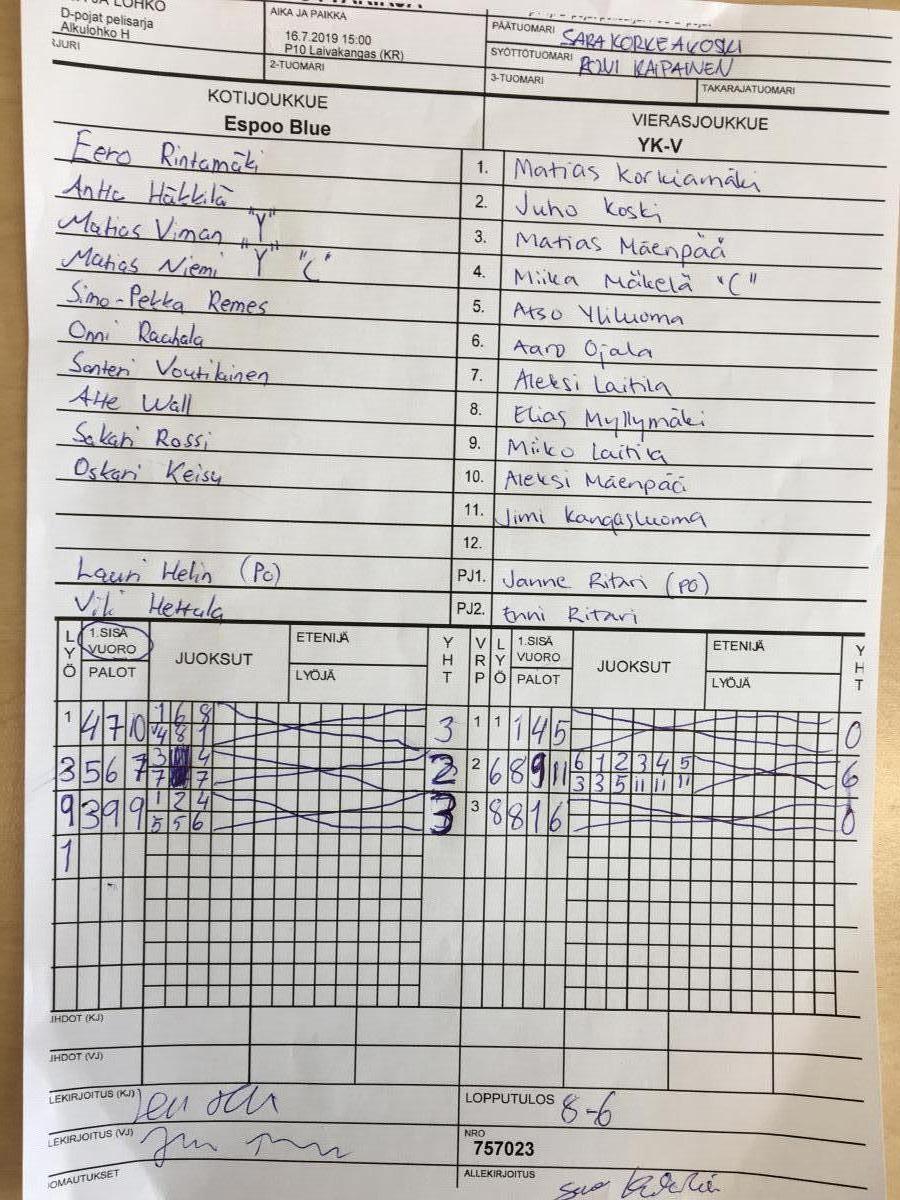 JA LOHKO
D-pojat pelisarja
Alkulohko H
AIKA JA PAIKKA
16.7.2019 15:00
P10 Laivakangas (KR)
2-TUOMARI
PÄÄTUOMARI SARA KORKEAKOSKI
SYÖTTÖTUOMARI RONI KAIPAINEN
3-TUOMARI
TAKARAJATUOMARI
KOTIJOUKKUE
Espoo Blue
VIERASJOUKKUE
YK-V
Eero Rintamäki 1. Matias Korkiamäki
Antto Häkkilä 2. Juho Koski
Matias Viman "Y" 3. Matias Mäenpää
Matias Niemi "Y" "C" 4. Miika Mäkelä "C"
Simo-Pekka Remes 5. Atso Yliluoma
Onni Rauhala 6. Aaro Ojala
Santeri Voutilainen 7. Aleksi Laitila
Atte Wall 8. Elias Myllymäki
Sakari Rossi 9. Miiko Laitila
Oskari Keisu 10. Aleksi Mäenpää
11. Jimi Kangasluoma
12.
Lauri Helin (PO) PJ1. Janne Ritari (PO)
Vili Hettula PJ2. Enni Ritari
LYÖ 1.SISÄ VUORO PALOT JUOKSUT ETENIJÄ LYÖJÄ YHT VRP LYÖ 1.SISÄ VUORO PALOT JUOKSUT ETENIJÄ LYÖJÄ YHT
1 4 7 10 1 6 8 3 1 1 1 4 5 0
4 8 1
3 5 6 7 3 4 2 2 6 8 9 11 6 1 2 3 4 5 6
7 7 3 3 5 11 11 11
9 3 9 9 1 2 4 3 3 8 8 1 6 0
5 5 6
1
LEKIRJOITUS (KJ)
LOPPUTULOS 8-6
LEKIRJOITUS (VJ)
NRO
757023
ALLEKIRJOITUS